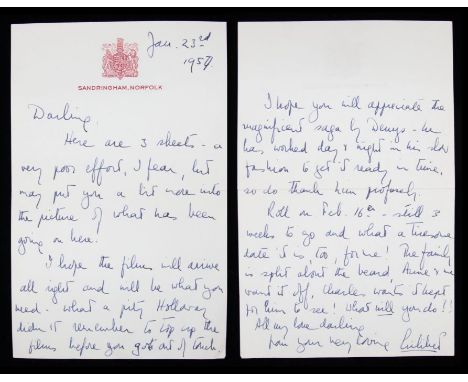 Jan. 23rd
1957.
SANDRINGHAM, NORFOLK
Darling,
Here are 3 sheets - a
very poor effort, I fear, but
may put you a bit more into
the picture of what has been
going on here.
I hope the films will arrive
all right and will be what you
need. What a pity Holloway
didn't remember to top up the
films before you got out of touch.
I hope you will appreciate the
magnificent saga by Denys - he
has worked day & night in his slow
fashion to get it ready in time,
so do thank him profusely.
Roll on Feb. 16th - still 3
weeks to go and what a tiresome
date it is, too, for me! The family
is split about the beard. Anne & me
want it off, Charles wants it kept
for him to see! What will you do!!
All my love darling
from your very loving